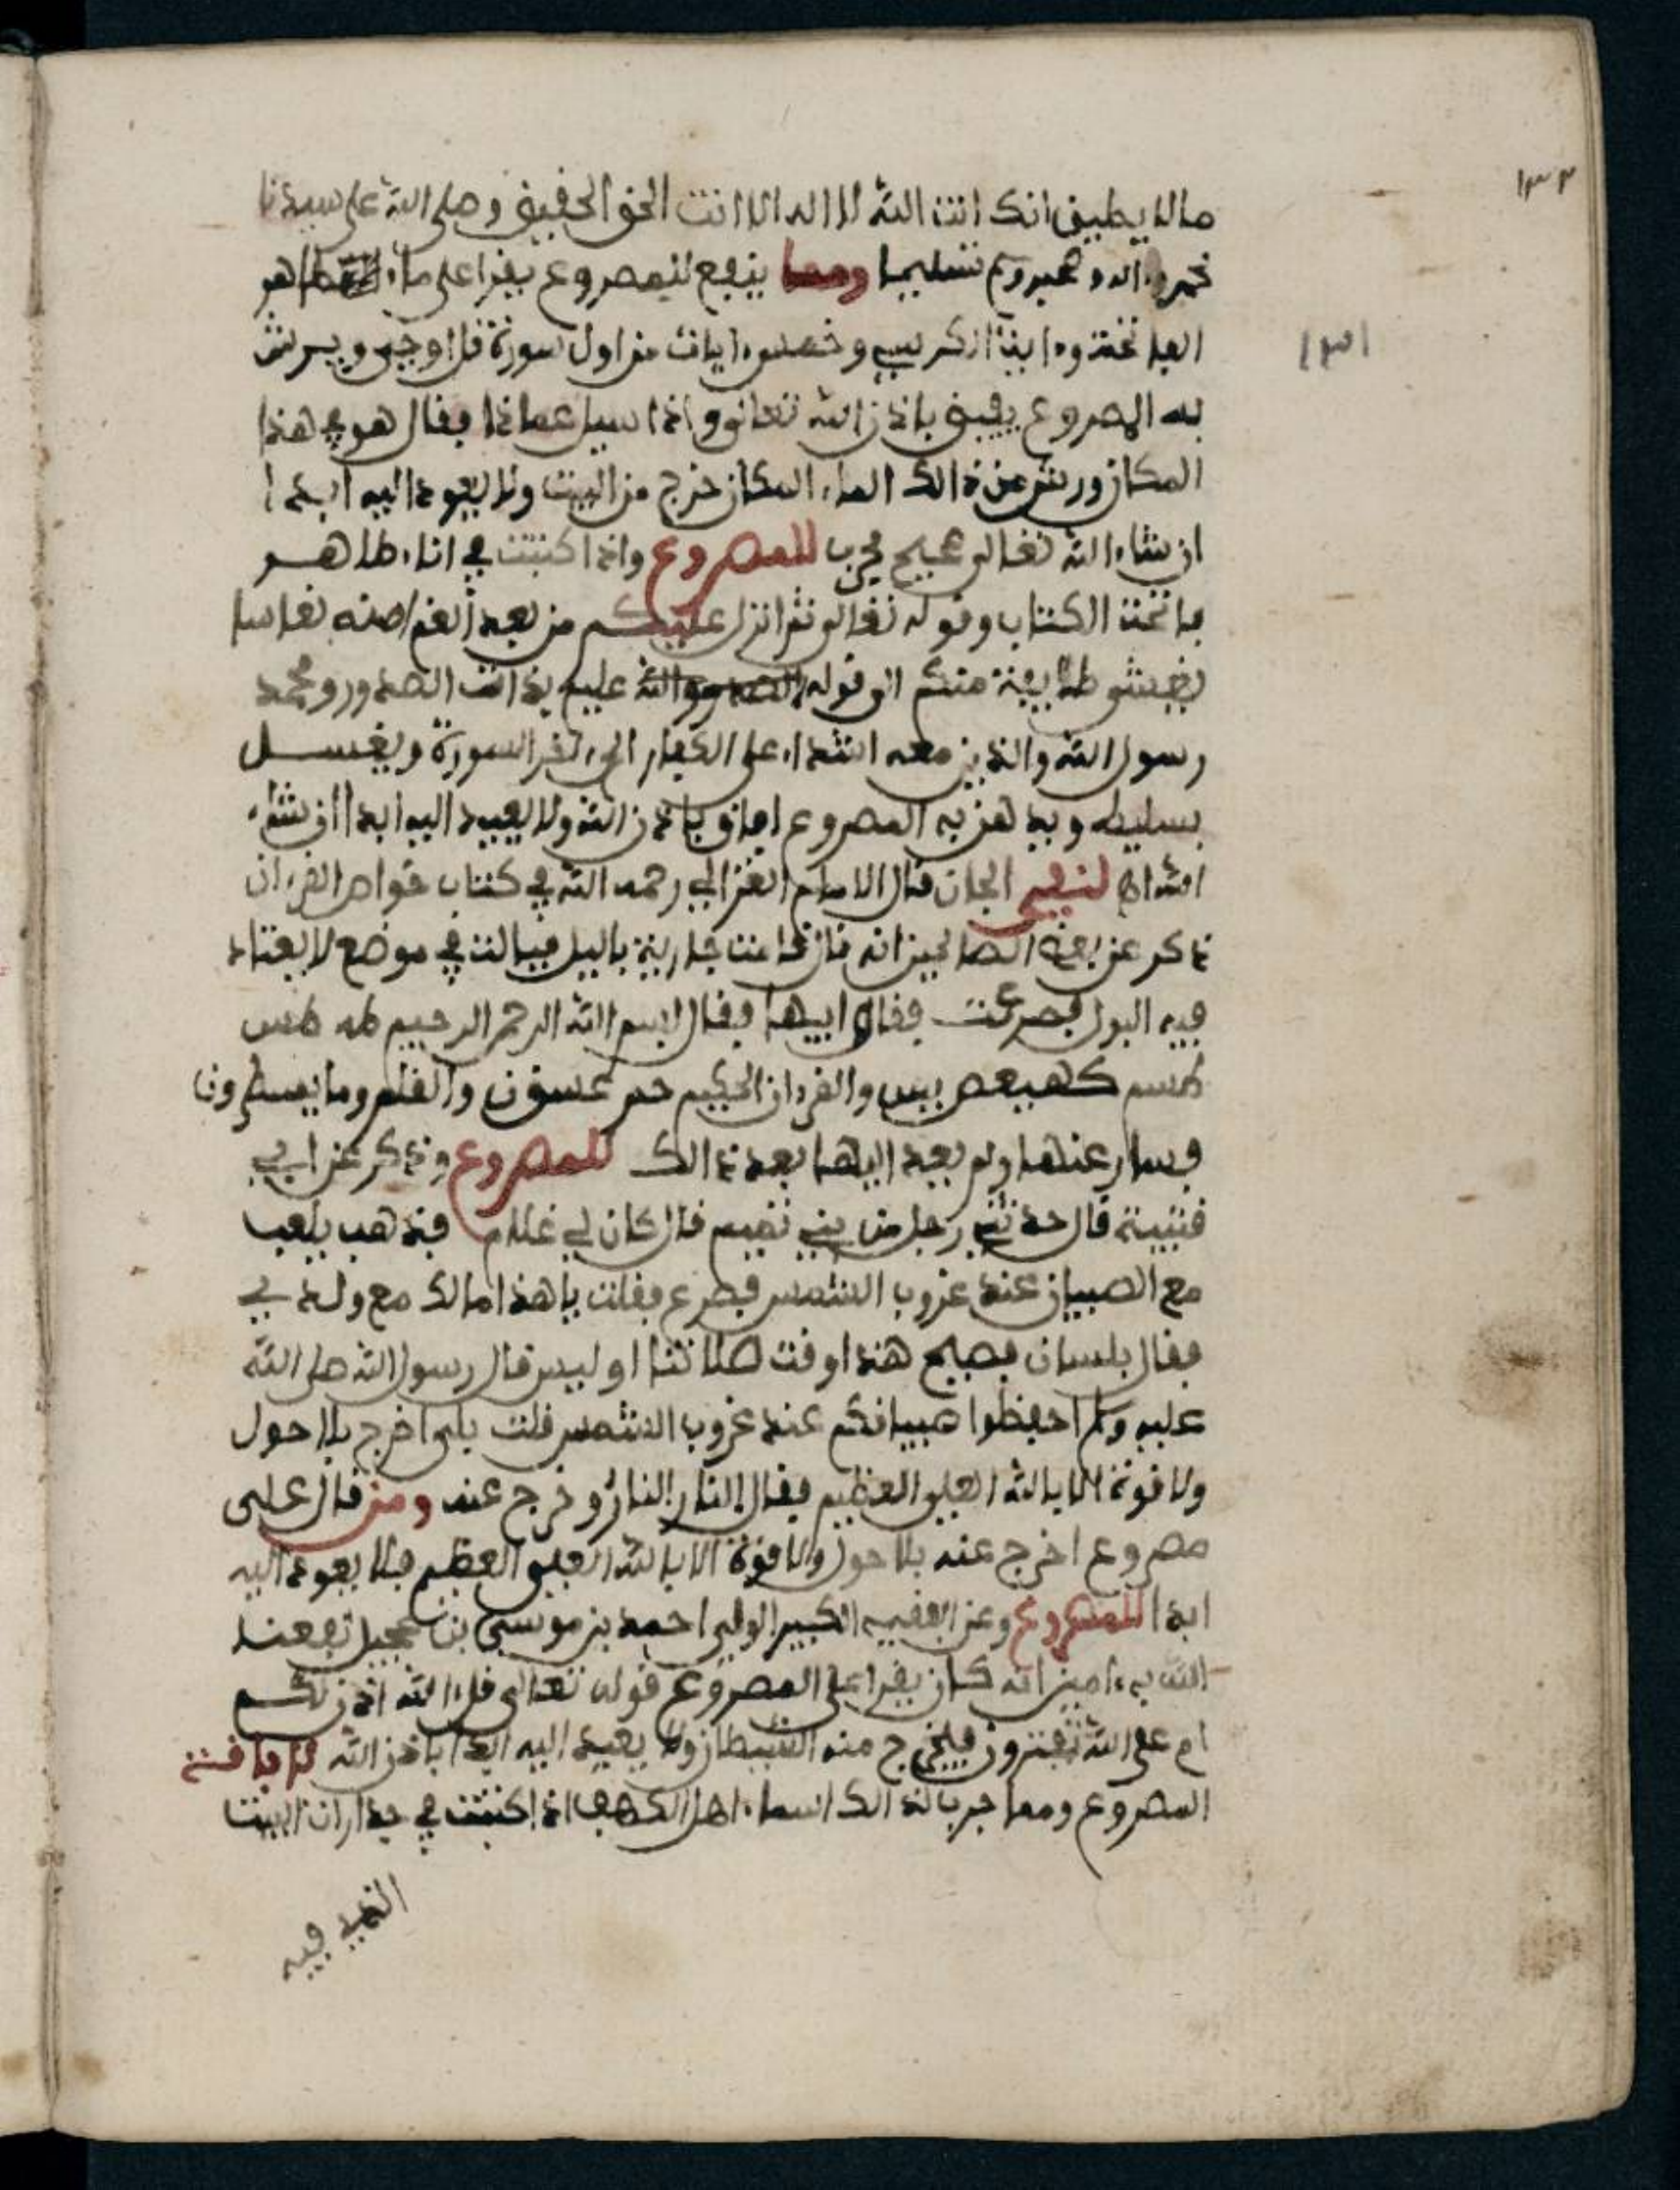 ١٣٣
١٣١
ما لا يطيق انك انت الله لا اله الا انت الحق الحقيق وصلى الله على سيدنا
محمد واله وصحبه وسلم تسليما ومما ينفع للمصروع يقرا على ماء طاهر
الفاتحة واية الكرسي وخمس ايات من اول سورة قل اوحي ويرش
به المصروع يفيق باذن الله تعالى واذا سيل عما ذا فقال هو في هذا
المكان ورش من ذالك الماء المكان خرج من البيت ولا يعود اليه ابدا
ان شاء الله تعالى صحيح مجرب للمصروع واذا كتبت في اناء طاهر
فاتحة الكتاب وقوله تعالى ثم انزل عليكم من بعد الغم امنة نعاسا
يغشى طايفة منكم الى قوله والله عليم بذات الصدور ومحمد
رسول الله والذين معه اشداء على الكفار الى ءاخر السورة ويغسل
بسليط ويدهن به المصروع افاق باذن الله ولا يعيد اليه ابدا ان شاء
الله اهـ لنفي الجان قال الامام الغزالي رحمه الله في كتاب خواص القرءان
ذكر عن بعض الصالحين انه قال قامت جارية باليل فبالت في موضع لا يعتاد
فيه البول فصرعت فقال ابيها فقال بسم الله الرحمن الرحيم طه طس
طسم كهيعص يس والقرءان الحكيم حم عسق ن والقلم وما يسطرون
فسار عنها ولم يعد اليها بعد ذالك للمصروع وذكر عن ابي
قتيبة قال حدثني رجل من بني تميم قال كان لي غلام فذهب يلعب
مع الصبيان عند غروب الشمس فصرع فقلت يا هذا مالك مع ولدي
فقال بلسان فصيح هذا وقت صلاتنا اوليس قال رسول الله صلى الله
عليه وسلم احفظوا صبيانكم عند غروب الشمس قلت بلى اخرج بلا حول
ولا قوة الا بالله العلي العظيم فقال النار النار وخرج عنه ومن قال على
مصروع اخرج عنه بلا حول ولا قوة الا بالله العلي العظيم فلا يعود اليه
ابدا للمصروع وعن الفقيه الكبير الولي احمد بن موسى بن عجيل نفعنا
الله به ءامين انه كان يقرا على المصروع قوله تعالى قل ءالله اذن لكم
ام على الله تفترون فيخرج منه الشيطان ولا يعيد اليه ابدا باذن الله لافاقة
المصروع ومما جرب لذالك اسماء اهل الكهف اذا كتبت في جدارات البيت
الذي فيه